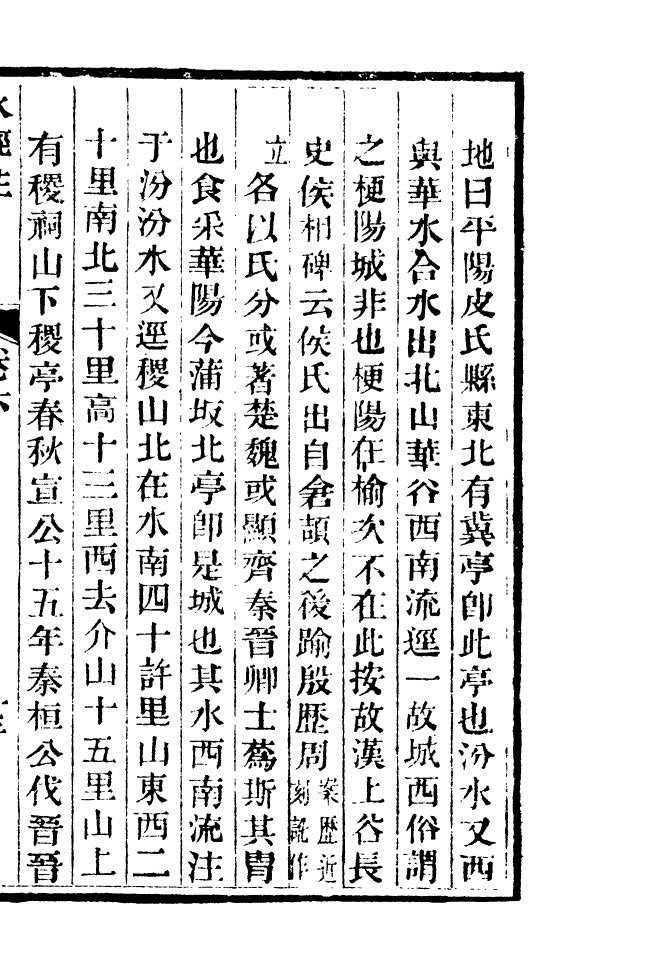 地曰平陽皮氏縣東北有冀亭卽此亭也汾水又西
與華水合水出北山華谷西南流逕一故城西俗謂
之梗陽城非也梗陽在榆次不在此按故漢上谷長
史侯相碑云侯氏出自倉頡之後踰殷歷周案歷近刻訛作
立各以氏分或著楚魏或顯齊秦晉卿士蔿斯其胄
也食采華陽今蒲坂北亭卽是城也其水西南流注
于汾汾水又逕稷山北在水南四十許里山東西二
十里南北三十里高十三里西去介山十五里山上
有稷祠山下稷亭春秋宣公十五年秦桓公伐晉晉
水經注 卷六